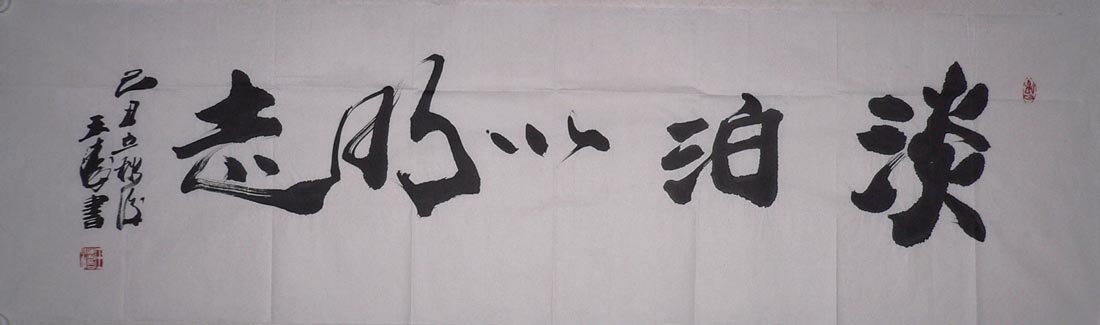 淡泊以明志
己丑立秋後
王 書